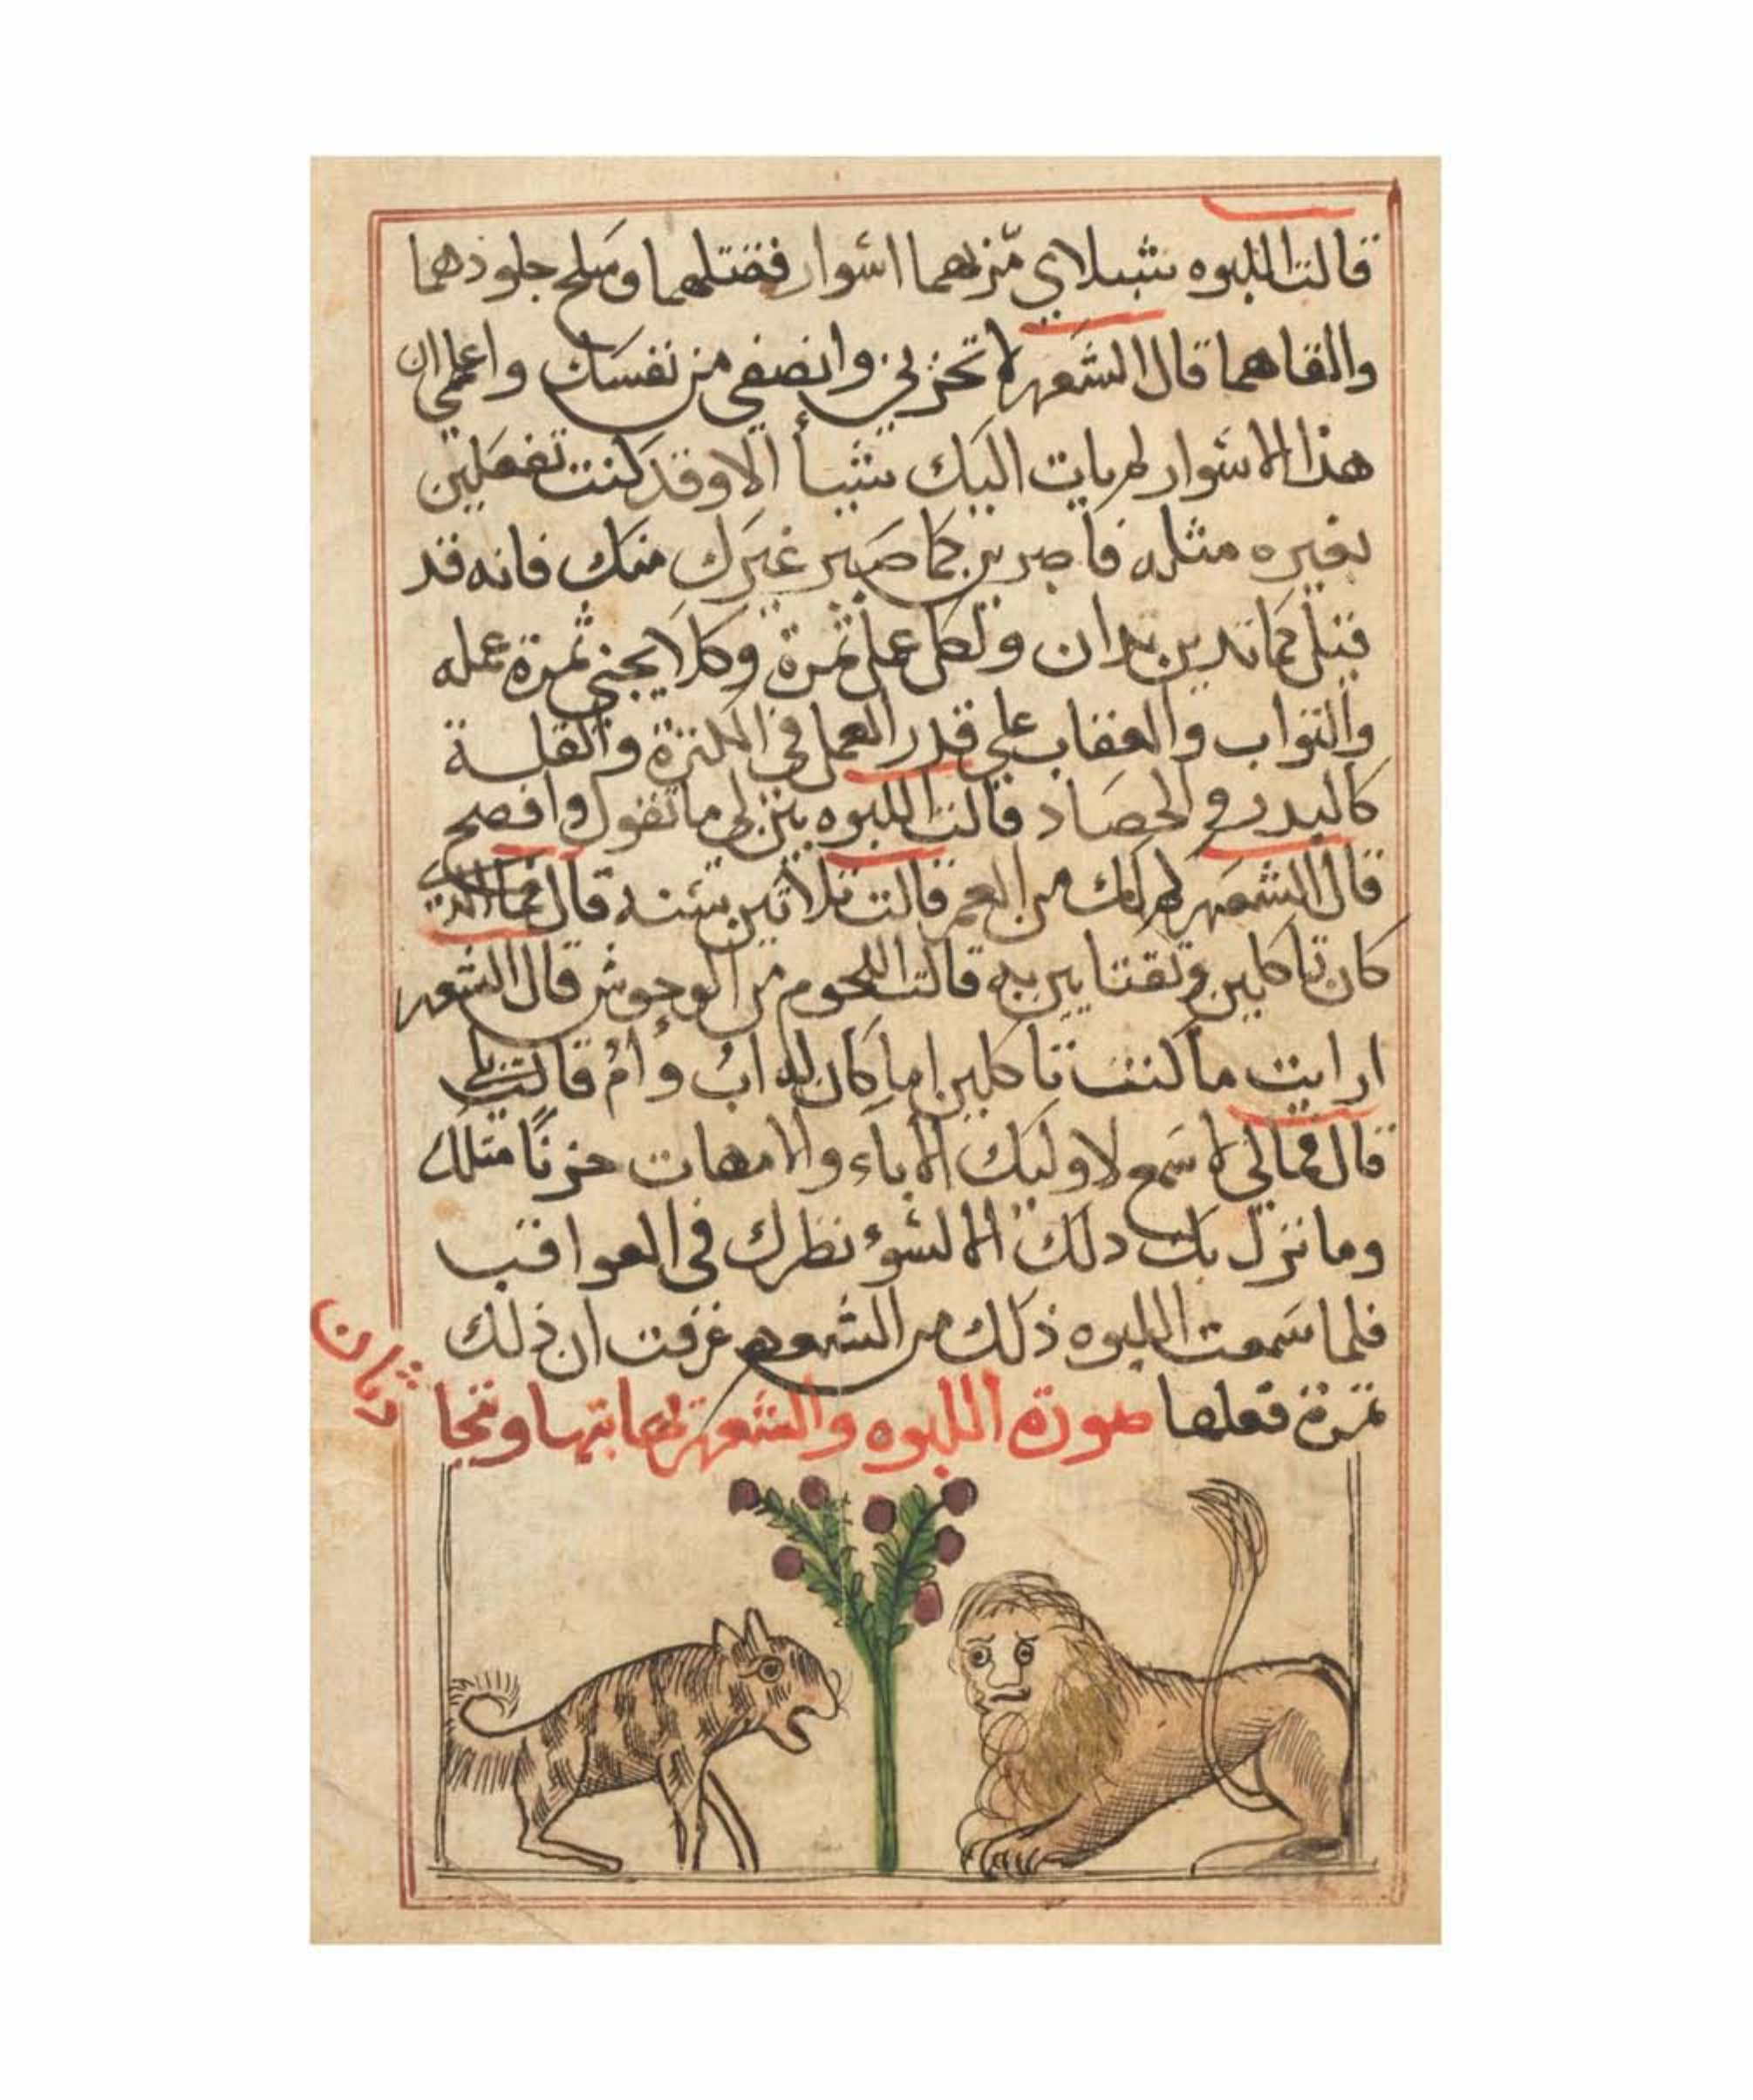 قالت اللبوه شبلاي مّر بهما اسوار فقتلهما وسلح جلودهما
والقاهما قال الشعهر لا تحزني وانصفي من نفسك واعلمي ان
هذا الاسوار لم يات اليك شيأ الا وقد كنت تفعلين
بغيره مثله فاصبرين كما صبر غيرك منك فانه قد
قيل كما تدين تدان ولكل عمل ثمرة وكلا يجني ثمرة عمله
والثواب والعقاب على قدر العمل في الكثرة والقلة
كالبدر والحصاد قالت اللبوه بين لي ما تقول وافصح
قال الشعهر كم لك من العمر قالت ثلاثين سنه قال فما الذي
كان تاكلين وتقتاتين به قالت اللحوم من الوحوش قال الشعهر
ارايت ما كنت تاكلين اما كان له ابُ وأمُ قالت بلى
قال فمالي لا اسمع لاوليك الاباء والامهات حزنًا مثلك
وما نزل بك دلك الا لسوء نظرك في العواقب
فلما سمعت اللبوه ذلك من الشعهر عرفت ان ذلك
ثمرة فعلها صورة اللبوه والشعهر يعاتبها وتحا
دثان